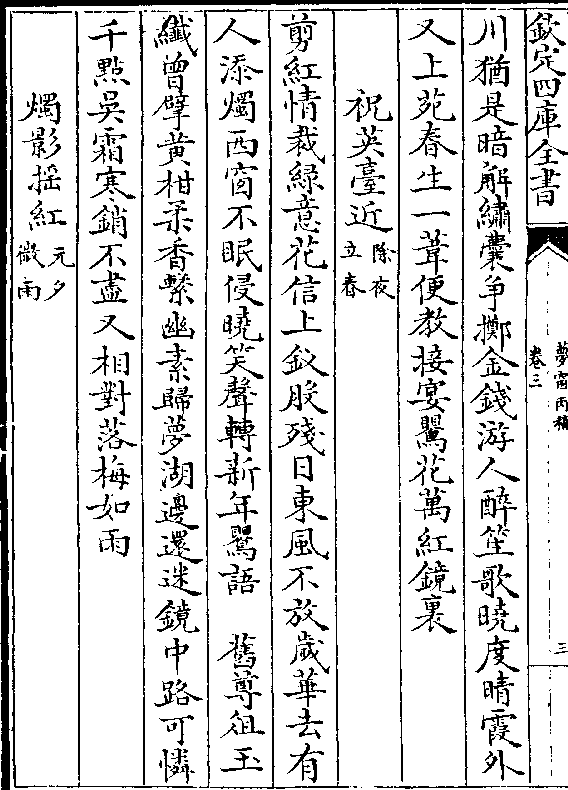 欽定四庫全書
夢窗丙稿
卷三
三
川猶是暗解繡囊争擲金錢游人醉笙歌曉度晴霞外
又上苑春生一葦便教接宴鸎花萬紅鏡裏
祝英臺近除夜立春
剪紅情裁緑意花信上釵股殘日東風不放歲華去有
人添燭西窗不眠侵曉笑聲轉新年鸎語　舊尊俎玉
纖曾擘黄柑柔香繫幽素歸夢湖邊還迷鏡中路可憐
千點吳霜寒銷不盡又相對落梅如雨
燭影摇紅元夕微雨